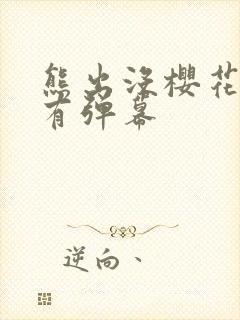 熊出没樱花
有弹幕
逆向、